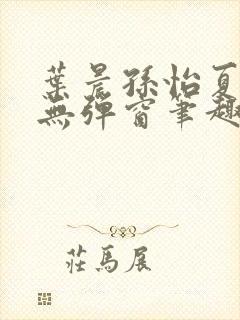 葉晨孫怡夏
無彈窗筆趣
莊馬展